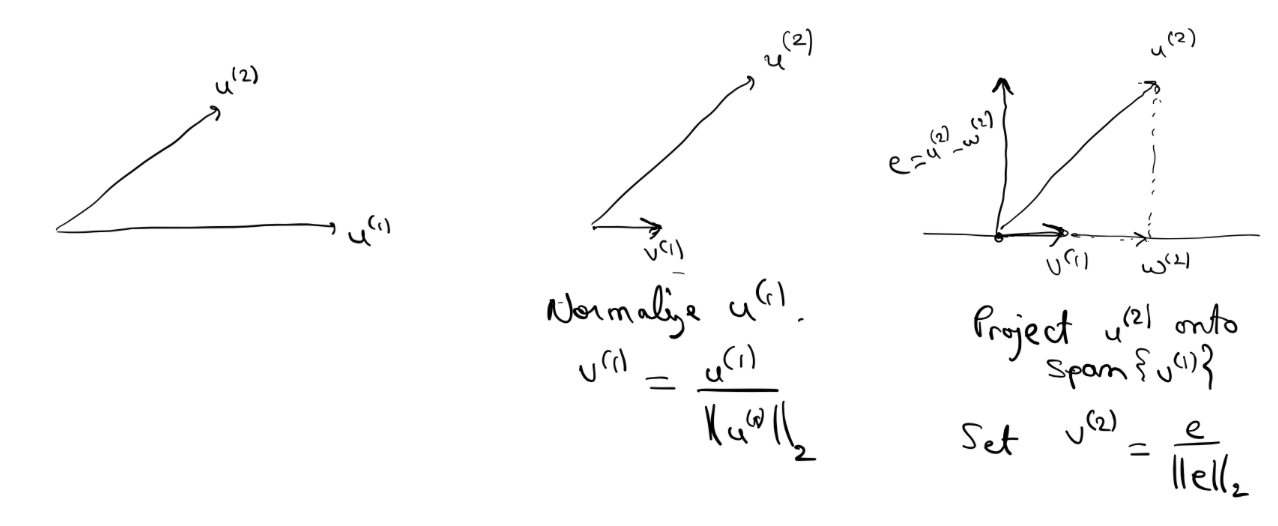 u⁽²⁾
u⁽¹⁾
u⁽²⁾
v⁽¹⁾
Normalize u⁽¹⁾.
v⁽¹⁾ = u⁽¹⁾ / ||u⁽¹⁾||₂
u⁽²⁾
e = u⁽²⁾ - w⁽²⁾
v⁽¹⁾
w⁽²⁾
Project u⁽²⁾ onto
span {v⁽¹⁾}
Set v⁽²⁾ = e / ||e||₂